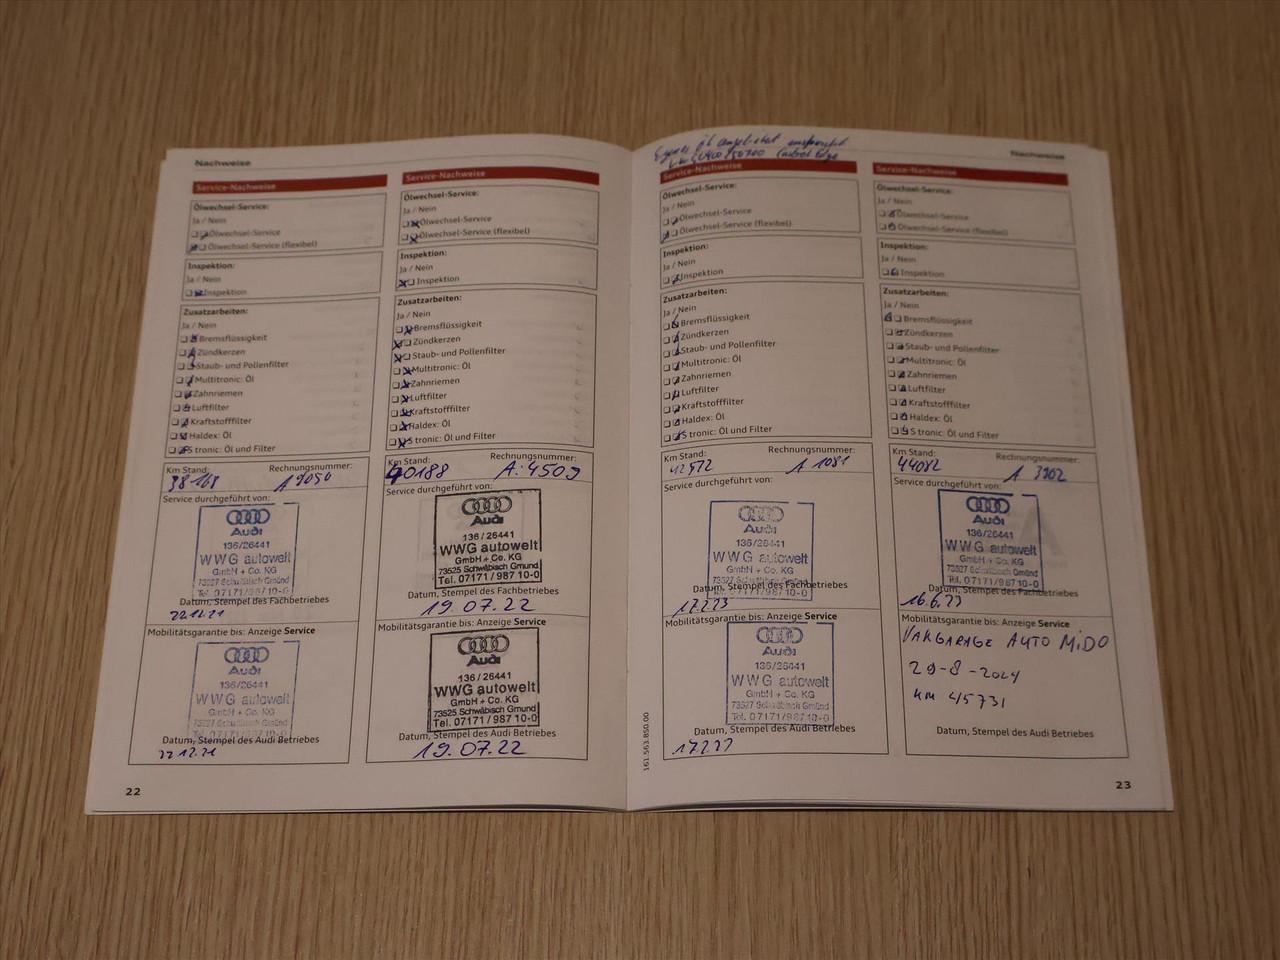 Nachweise
Service-Nachweise
Ölwechsel-Service:
Ja / Nein
Ölwechsel-Service
Ölwechsel-Service (flexibel)
Inspektion:
Ja / Nein
Inspektion
Zusatzarbeiten:
Ja / Nein
Bremsflüssigkeit
Zündkerzen
Staub- und Pollenfilter
Multitronic: Öl
Zahnriemen
Luftfilter
Kraftstofffilter
Haldex: Öl
S tronic: Öl und Filter
Km Stand: Rechnungsnummer:
38168 A 9050
Service durchgeführt von:
Audi
136/26441
WWG autowelt
GmbH + Co. KG
73527 Schwäbisch Gmünd
Tel. 07171/987 10-0
Datum, Stempel des Fachbetriebes
22.12.21
Mobilitätsgarantie bis: Anzeige Service
Audi
136/26441
WWG autowelt
GmbH + Co. KG
73527 Schwäbisch Gmünd
Tel. 07171/987 10-0
Datum, Stempel des Audi Betriebes
22.12.21
22
Service-Nachweise
Ölwechsel-Service:
Ja / Nein
Ölwechsel-Service
Ölwechsel-Service (flexibel)
Inspektion:
Ja / Nein
Inspektion
Zusatzarbeiten:
Ja / Nein
Bremsflüssigkeit
Zündkerzen
Staub- und Pollenfilter
Multitronic: Öl
Zahnriemen
Luftfilter
Kraftstofffilter
Haldex: Öl
S tronic: Öl und Filter
Km Stand: Rechnungsnummer:
40188 A:4509
Service durchgeführt von:
Audi
136/26441
WWG autowelt
GmbH + Co. KG
73525 Schwäbisch Gmund
Tel. 07171/987 10-0
Datum, Stempel des Fachbetriebes
19.07.22
Mobilitätsgarantie bis: Anzeige Service
Audi
136/26441
WWG autowelt
GmbH + Co. KG
73525 Schwäbisch Gmund
Tel. 07171/987 10-0
Datum, Stempel des Audi Betriebes
19.07.22
Nachweise
Öl
Service-Nachweise
Ölwechsel-Service:
Ja / Nein
Ölwechsel-Service
Ölwechsel-Service (flexibel)
Inspektion:
Ja / Nein
Inspektion
Zusatzarbeiten:
Ja / Nein
Bremsflüssigkeit
Zündkerzen
Staub- und Pollenfilter
Multitronic: Öl
Zahnriemen
Luftfilter
Kraftstofffilter
Haldex: Öl
S tronic: Öl und Filter
Km Stand: Rechnungsnummer:
42572 A 1081
Service durchgeführt von:
Audi
136/26441
WWG autowelt
GmbH + Co. KG
73527 Schwäbisch Gmünd
Tel. 07171/987 10-0
Datum, Stempel des Fachbetriebes
17.2.23
Mobilitätsgarantie bis: Anzeige Service
Audi
136/26441
WWG autowelt
GmbH + Co. KG
73527 Schwäbisch Gmünd
Tel. 07171/987 10-0
Datum, Stempel des Audi Betriebes
17.2.23
161.563.850.00
Service-Nachweise
Ölwechsel-Service:
Ja / Nein
Ölwechsel-Service
Ölwechsel-Service (flexibel)
Inspektion:
Ja / Nein
Inspektion
Zusatzarbeiten:
Ja / Nein
Bremsflüssigkeit
Zündkerzen
Staub- und Pollenfilter
Multitronic: Öl
Zahnriemen
Luftfilter
Kraftstofffilter
Haldex: Öl
S tronic: Öl und Filter
Km Stand: Rechnungsnummer:
44082 A 3902
Service durchgeführt von:
Audi
136/26441
WWG autowelt
GmbH + Co. KG
73527 Schwäbisch Gmünd
Tel. 07171/987 10-0
Datum, Stempel des Fachbetriebes
16.6.23
Mobilitätsgarantie bis: Anzeige Service
VAKGARAGE AUTO MiDO
29-8-2024
km 45731
Datum, Stempel des Audi Betriebes
23